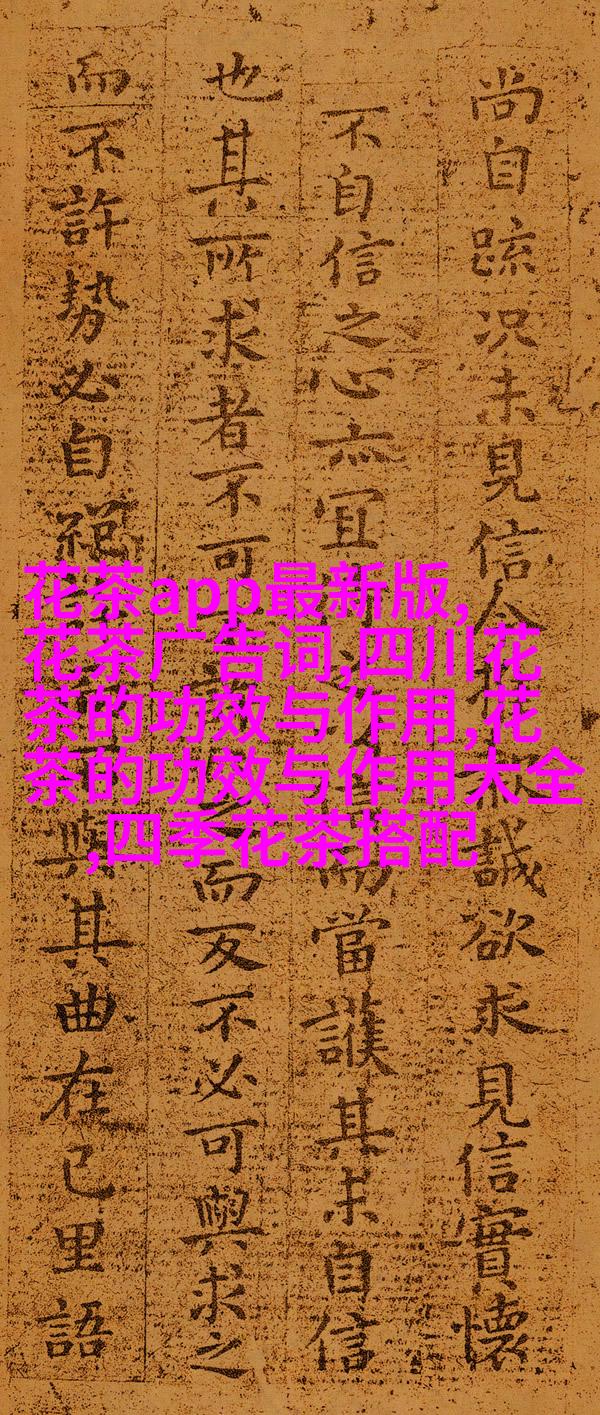 尚自疏况未見信今誠欲求見信實懷
不自信之心亦宜當護其未自信
也其所求者不可之而反不必可與求之
而不許勢必自絕與其曲在己里語
花茶app最新版,
花茶广告词,四川花
茶的功效与作用,花
茶的功效与作用大全
,四季花茶搭配